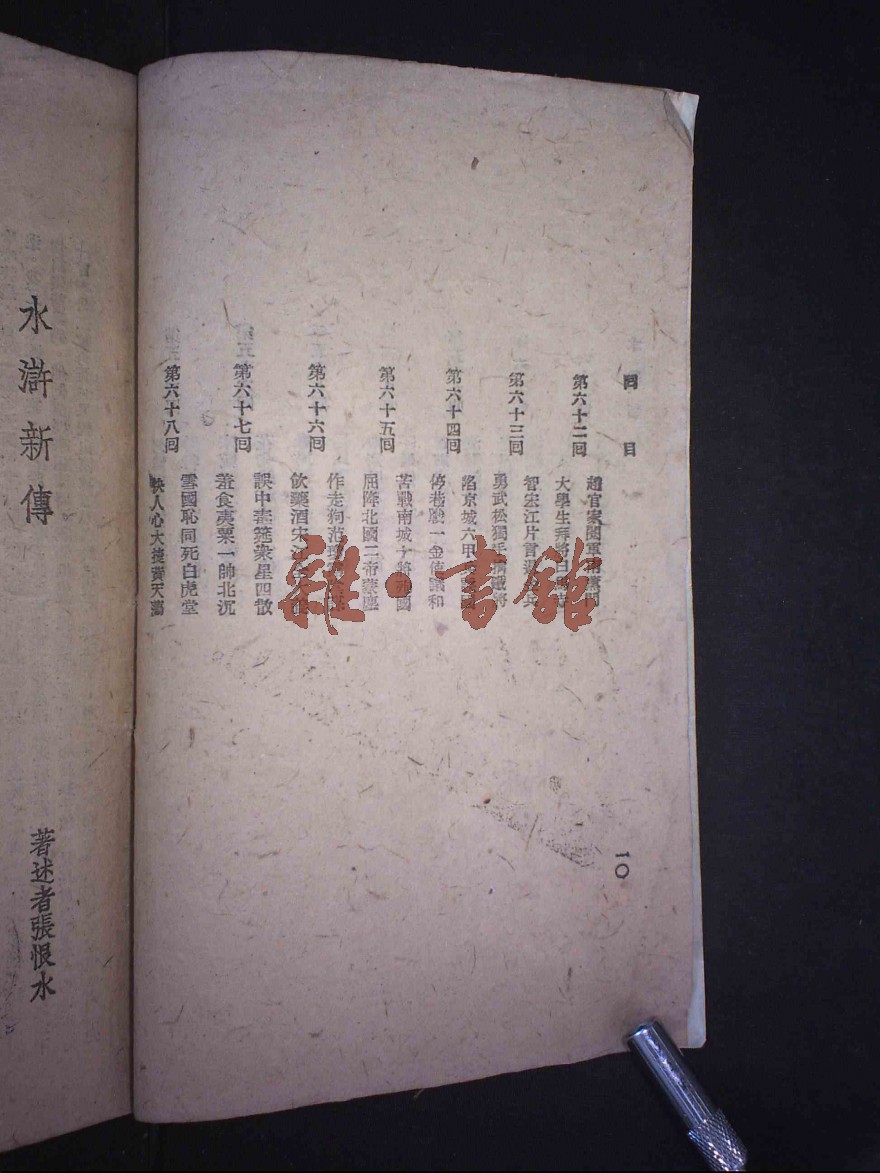 回目
第六十二回
趙官家閱軍
大學生拜將白
第六十三回
智宋江片言退兵
勇武松獨手
第六十四回
陷京城六甲
停巷戰一金使議和
第六十五回
苦戰南城十將殉國
屈降北國二帝蒙塵
第六十六回
作走狗范瓊
飲藥酒宋江
第六十七回
誤中毒筵衆星四散
羞食夷粟一帥北沉
第六十八回
雪國恥同死白虎堂
快人心大捷黃天蕩
一〇
水滸新傳
著述者張恨水
雜·書館